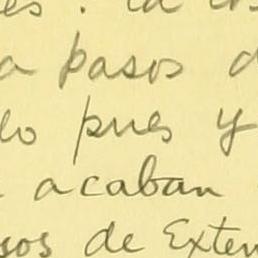 es. la
a pasos d
lo pues y
acaban
sos de Exten